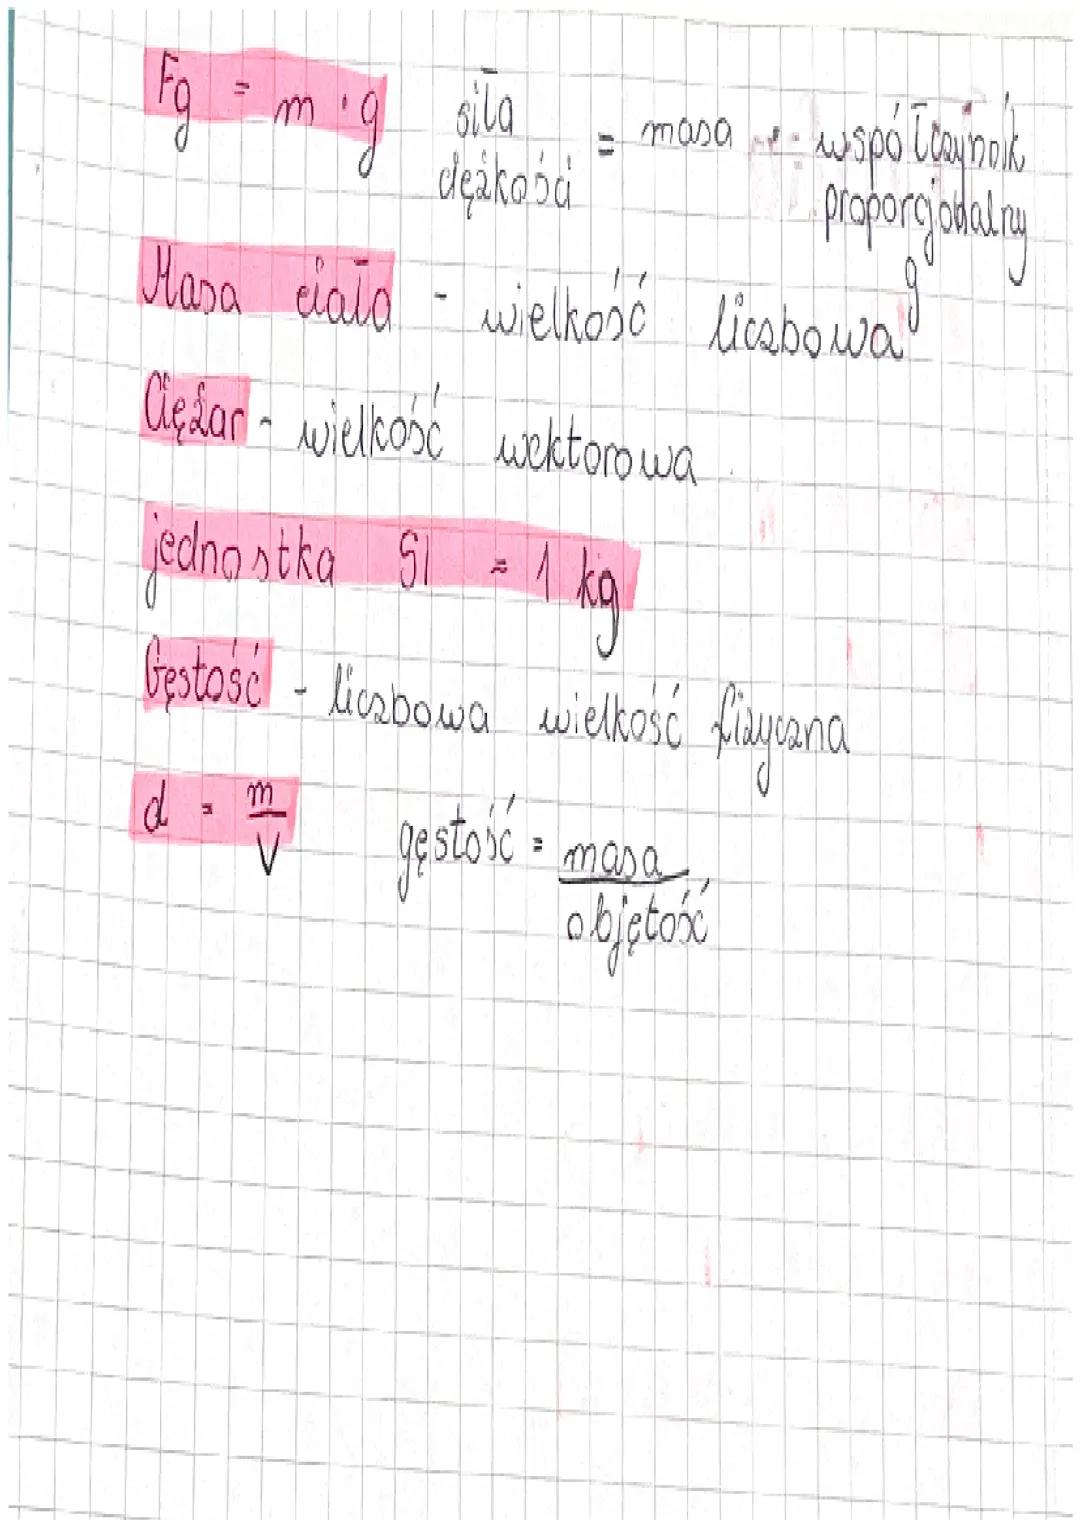 Fg = m · g siła ciężkości = masa · współczynnik proporcjonalny g
Masa ciała - wielkość liczbowa
Ciężar - wielkość wektorowa
jednostka SI = 1 kg
Gęstość - liczbowa wielkość fizyczna
d = m/V gęstość = masa/objętość